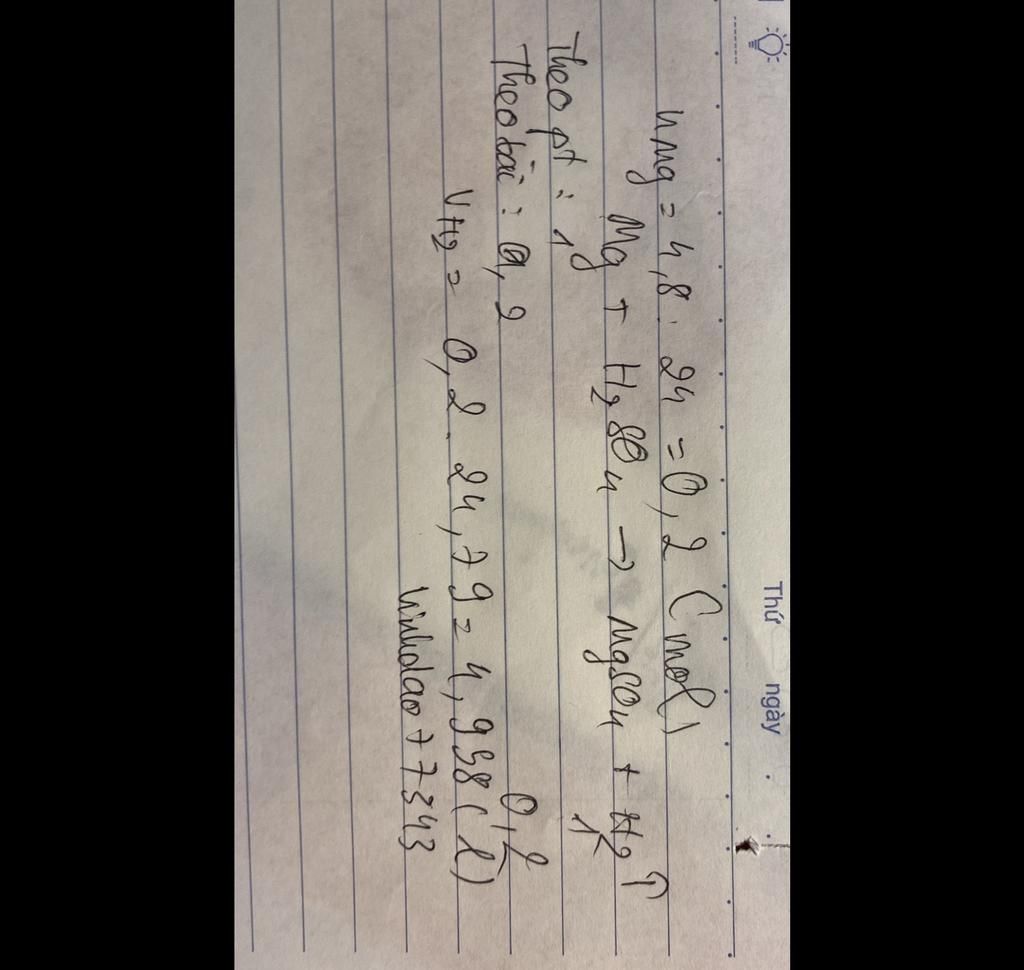 Thứ ngày
nMg = 4,8 : 24 = 0,2 (mol)
Mg + H₂SO₄ → MgSO₄ + H₂↑
Theo pt : 1 1
Theo bài : 0,2 0,2
VH₂ = 0,2 . 24,79 = 4,958 (l)
linhdao77343